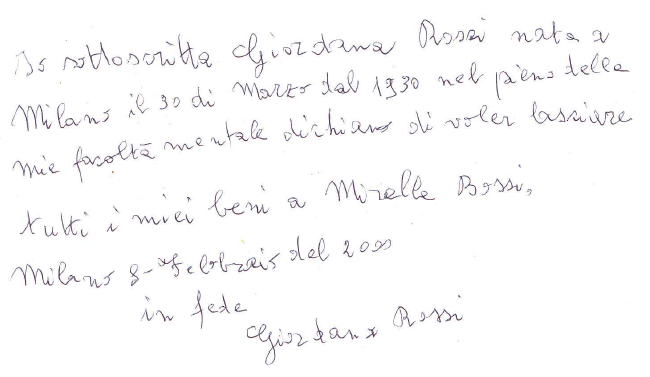 Io sottoscritta Giordana Rossi nata a
Milano il 30 di Marzo dal 1930 nel pieno delle
mie facoltà mentale dichiaro di voler lasciare
tutti i miei beni a Mirella Bossi,
Milano 8-Febbraio del 2000
in fede
Giordana Rossi